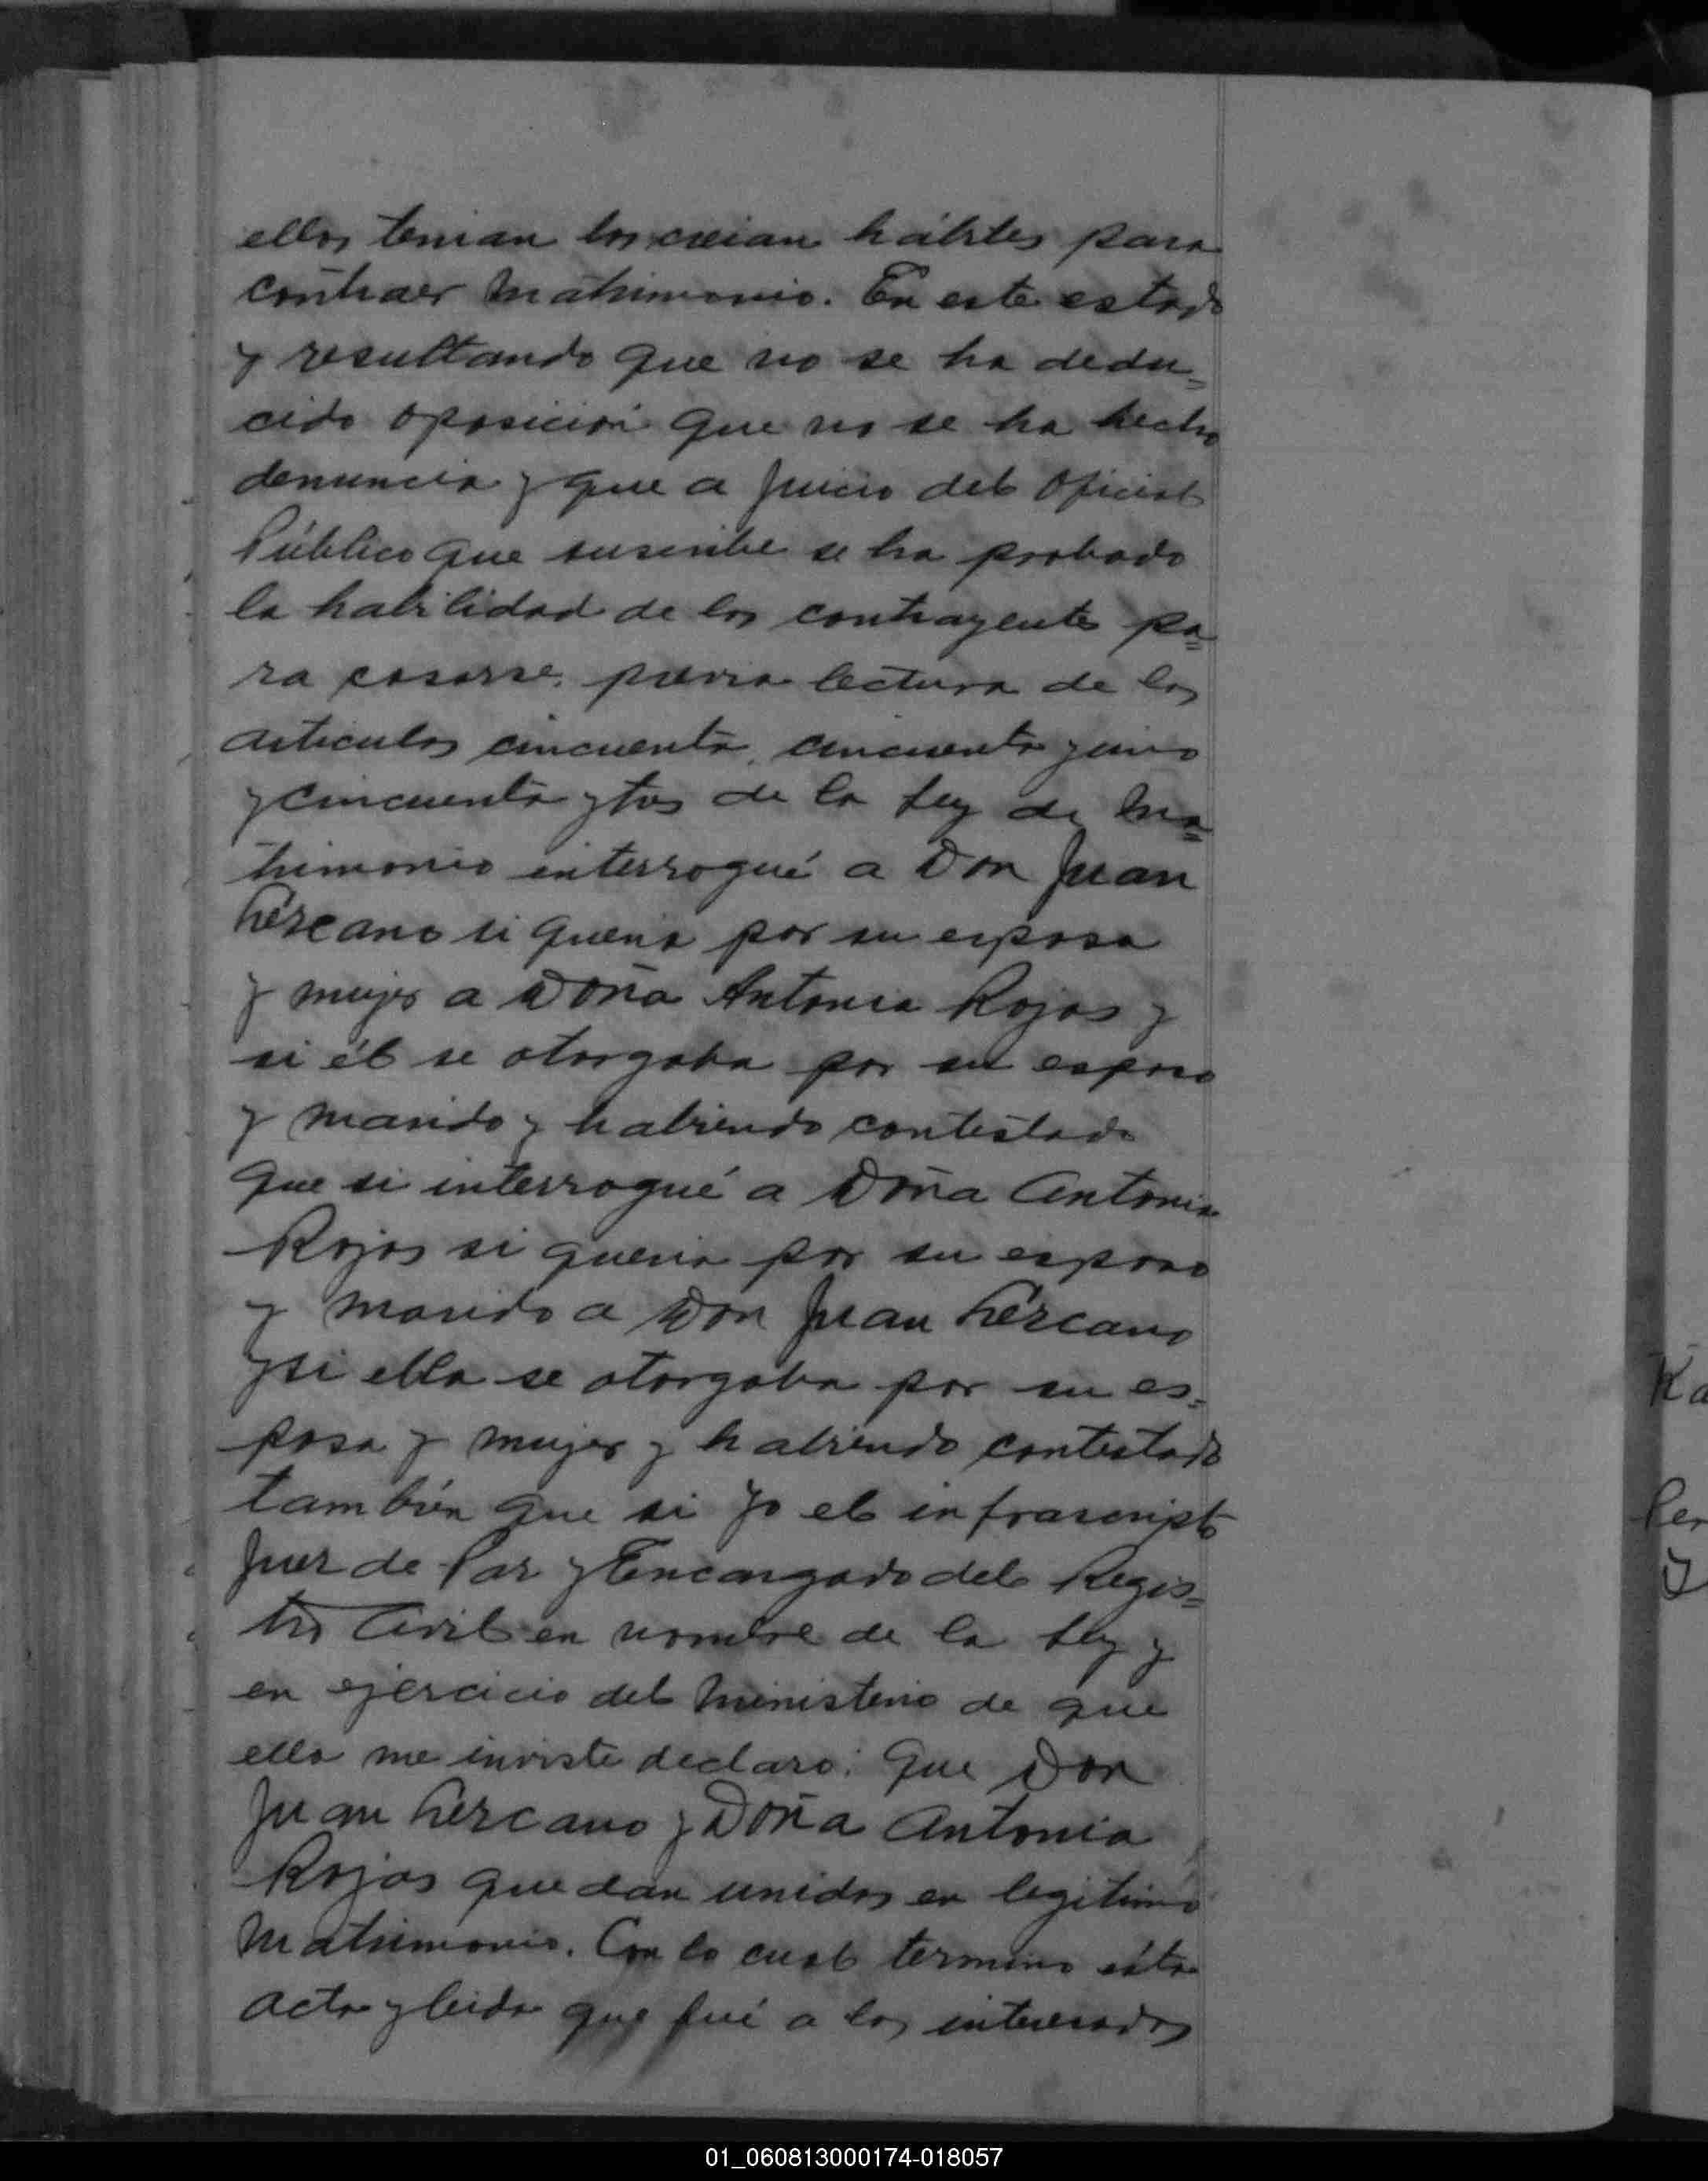 ellos tenian los creian hábiles para
contraer matrimonio. En este estado
y resultando que no se ha dedu=
cido oposición que no se ha hecho
denuncia y que a juicio del Oficial
Público que suscribe se ha probado
la habilidad de los contrayentes pa=
ra casarse, previa lectura de los
articulos cincuenta, cincuenta y uno
y cincuenta y tres de la Ley de Ma=
trimonio interrogué a Don Juan
Lércano si queria por su esposa
y mujer a Doña Antonia Rojas y
si él se otorgaba por su esposo
y marido y habiendo contestado
que si interrogué a Doña Antonia
Rojas si queria por su esposo
y marido a Don Juan Lércano
y si ella se otorgaba por su es=
posa y mujer y habiendo contestado
también que si yo el infrascripto
Juez de Paz y Encargado del Regis=
tro Civil en nombre de la Ley y
en ejercicio del Ministerio de que
ella me inviste declaro: Que Don
Juan Lercano y Doña Antonia
Rojas quedan unidos en legitimo
Matrimonio. Con lo cual termino ésta
acta y leida que fué a los interesados
01_060813000174-018057